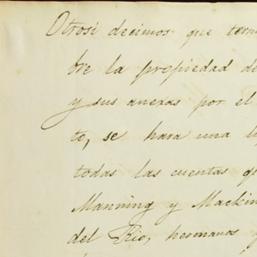 Otrosi decimos que
bre la propiedad de
y sus anexas por el
to, se hara una
todas las cuentas
Manning y
del Rio, hermanos y